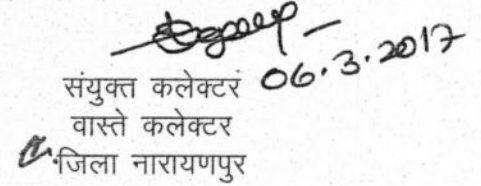 06.3.2017
संयुक्त कलेक्टर
वास्ते कलेक्टर
जिला नारायणपुर